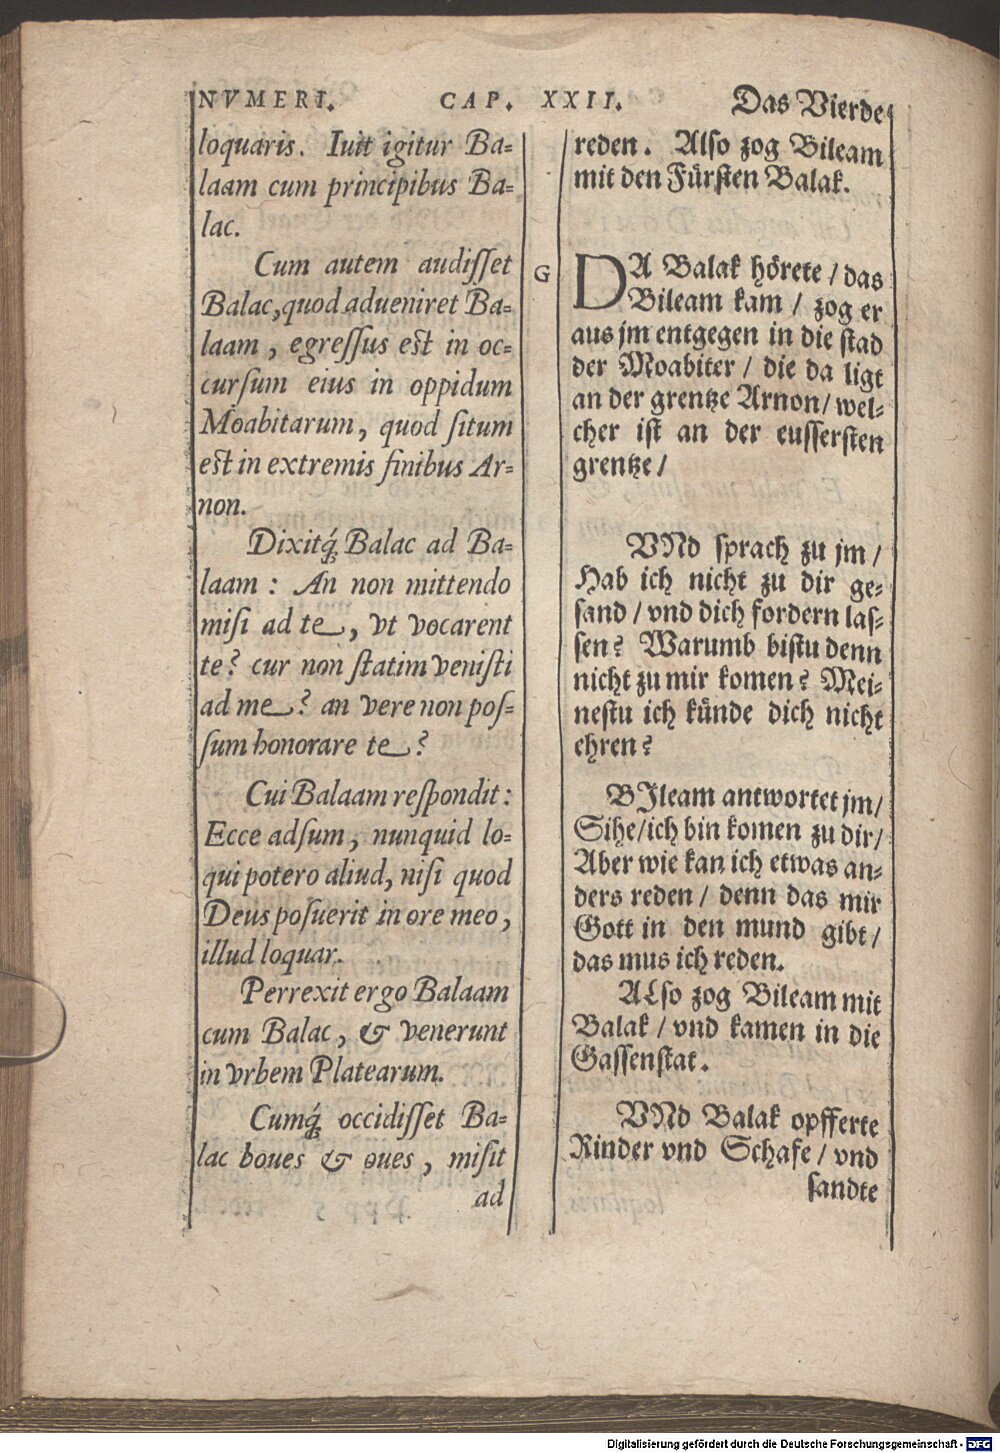 NVMERI. CAP. XXII. Das Vierde
loquaris. Iuit igitur Ba-
laam cum principibus Ba-
lac.
Cum autem audiſſet
Balac, quod adueniret Ba-
laam, egreſſus eſt in oc-
curſum eius in oppidum
Moabitarum, quod ſitum
eſt in extremis finibus Ar-
non.
Dixitq́; Balac ad Ba-
laam: An non mittendo
miſi ad te, vt vocarent
te? cur non ſtatim veniſti
ad me? an vere non poſ-
ſum honorare te?
Cui Balaam reſpondit:
Ecce adſum, nunquid lo-
qui potero aliud, niſi quod
Deus poſuerit in ore meo,
illud loquar.
Perrexit ergo Balaam
cum Balac, & venerunt
in vrbem Platearum.
Cumq́; occidiſſet Ba-
lac boues & oues, miſit
ad
G
reden. Alſo zog Bileam
mit den Fürſten Balak.
DA Balak hörete / das
Bileam kam / zog er
aus jm entgegen in die ſtad
der Moabiter / die da ligt
an der grentze Arnon / wel-
cher iſt an der euſſerſten
grentze /
VNd ſprach zu jm /
Hab ich nicht zu dir ge-
ſand / vnd dich fordern laſ-
ſen? Warumb biſtu denn
nicht zu mir komen? Mei-
neſtu ich künde dich nicht
ehren?
BJleam antwortet jm /
Sihe / ich bin komen zu dir /
Aber wie kan ich etwas an-
ders reden / denn das mir
Gott in den mund gibt /
das mus ich reden.
ALſo zog Bileam mit
Balak / vnd kamen in die
Gaſſenſtat.
VNd Balak opfferte
Rinder vnd Schafe / vnd
ſandte
Digitalisierung gefördert durch die Deutsche Forschungsgemeinschaft - DFG